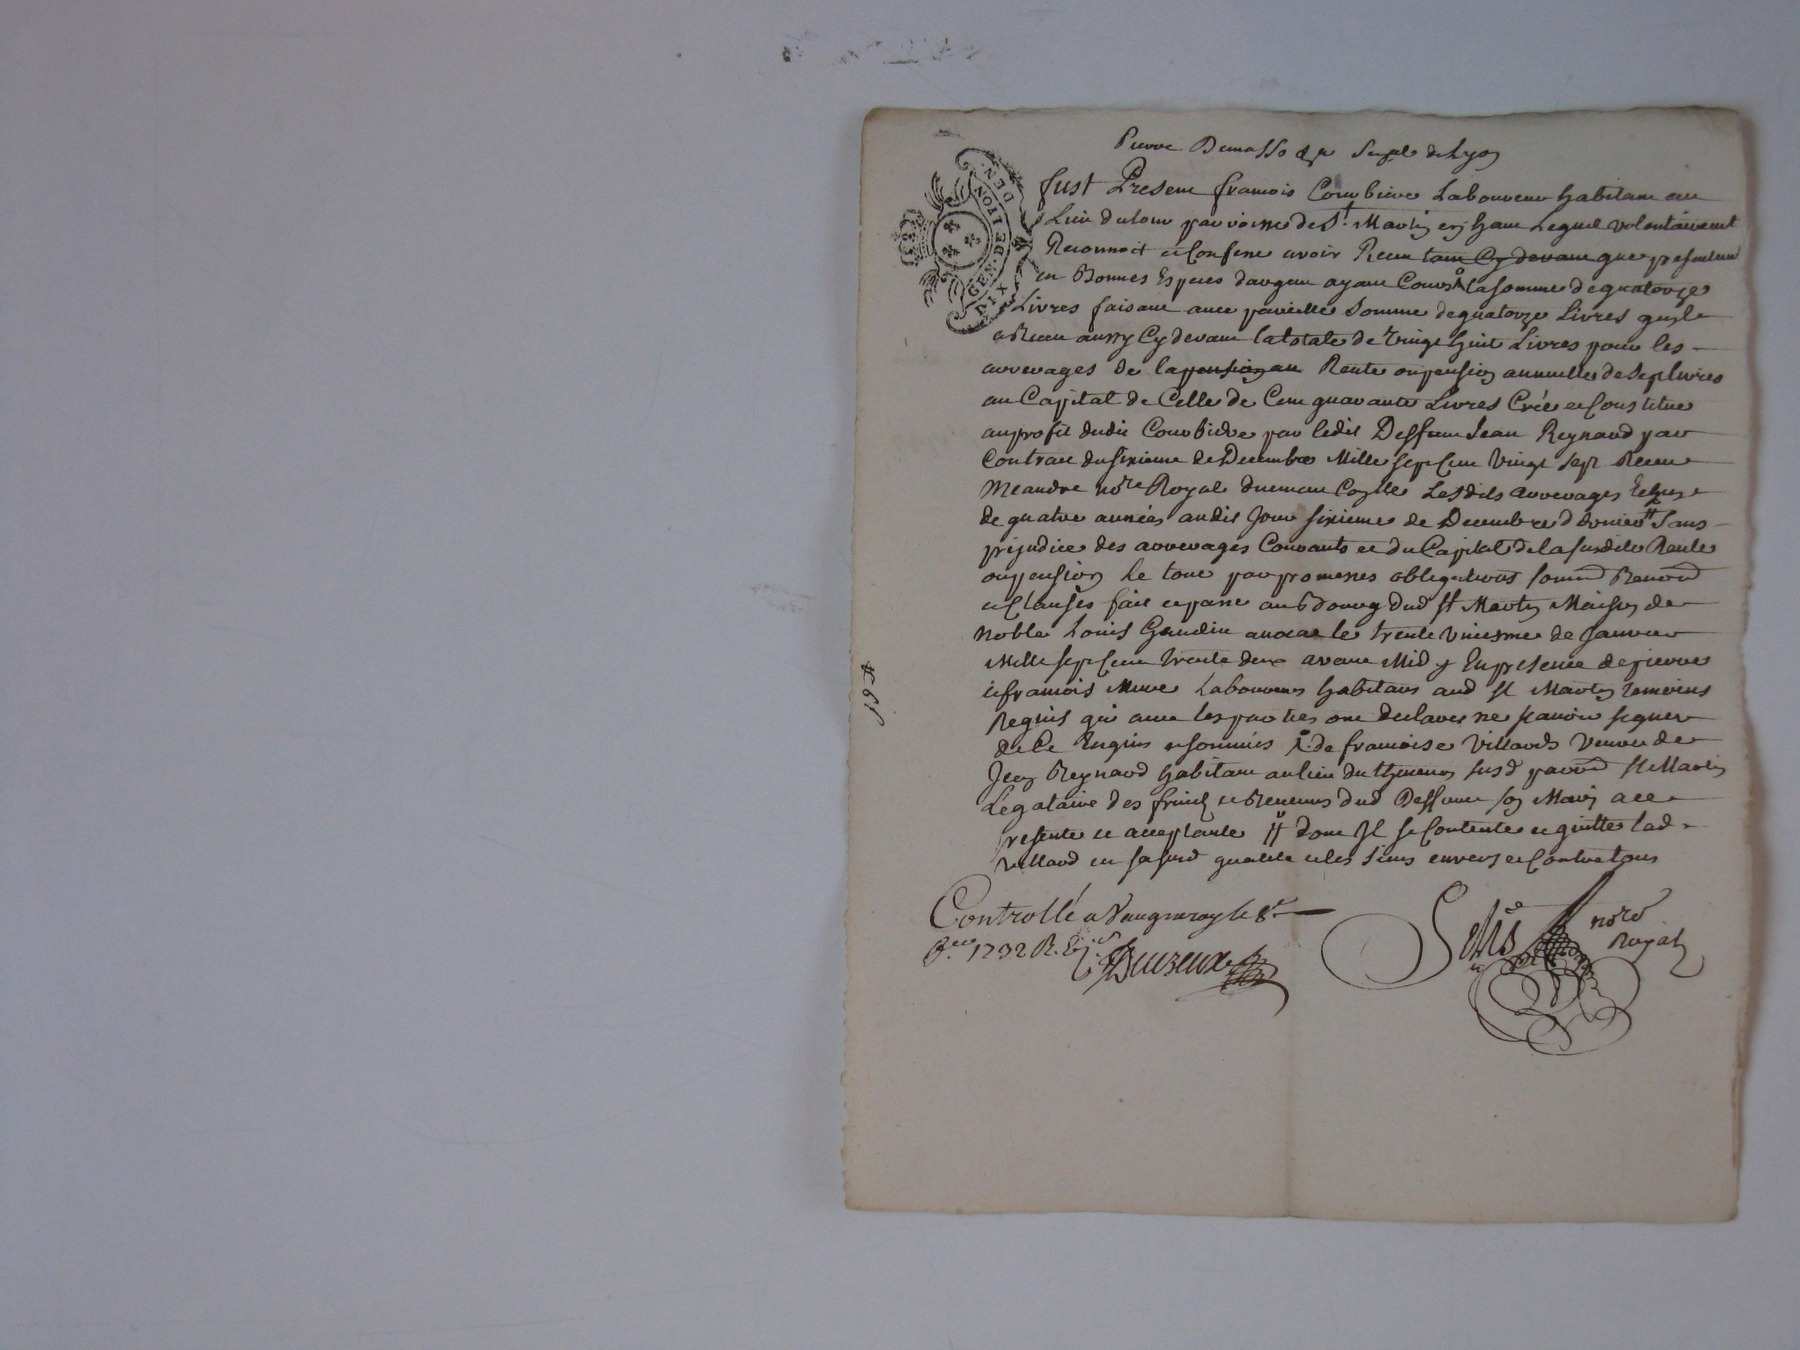 Pierre
fust Present francois Courbiere Laboureur habitant au
Lieu du parroisse de St. Martin en haut Lequel volontairement
Reconnoit et Confesse avoir Receu tant Cy devant que presentement
en Bonnes Especes dargent ayant Cours la somme de quatorze
Livres faisant avec pareille Somme de quatorze Livres quil
a Receu aussy Cy devant la totale de vingt huit Livres pour les
arrerages de la pension au Rente ou pension annuelle de Sept livres
au Capital de Celle de Cent quarante Livres Crée et Constitue
au profit dudit Courbiere par ledit Deffunt Jean Reynaud par
Contract du sixieme de Decembre Mille sept Cent vingt sept Receu
Meandre nore Royal Lesdits arrerages Echus
de quatre années audit Jour sixieme de Decembre dernier Sans
prejudice des arrerages Courants et du Capital de la susdite Rente
ou pension Le tout par promesses obligations soumd Renond
et Clauses fait et passé au Bourg dud St Martin Maison de
noble Louis Gaudin le trente uniesme de Janvier
Mille sept Cent trente deux avant Midy En presence de pierre
et francois Laboureurs habitans aud St Martin temoins
Requis qui avec les parties ont declarer ne scavoir signer
de Ce Enquis et sommés de francoise Villard Veuve de
Jean Reynaud habitant au lieu du susd parrd St Martin
Legataire des fruits et Revenus dud Deffunt son Mary a ce
presente et acceptante dont Il se Contente et quitte lad
Villard en sa susd qualité et les siens envers et Contre tous
Controllé a Vaugneray le 8e
1732 R.
nore
Royal
GEN. DE LYON